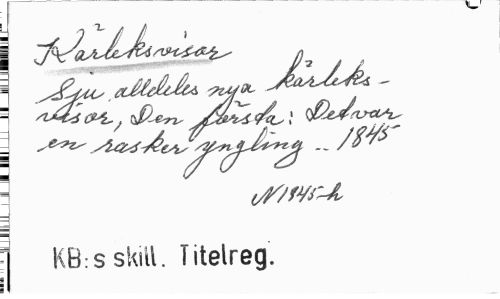 Kärleksvisor
Sju alldeles nya kärleks-
visor, Den första: Det var
en rasker yngling .. 1845
N1945-h
KB:s skill. Titelreg.